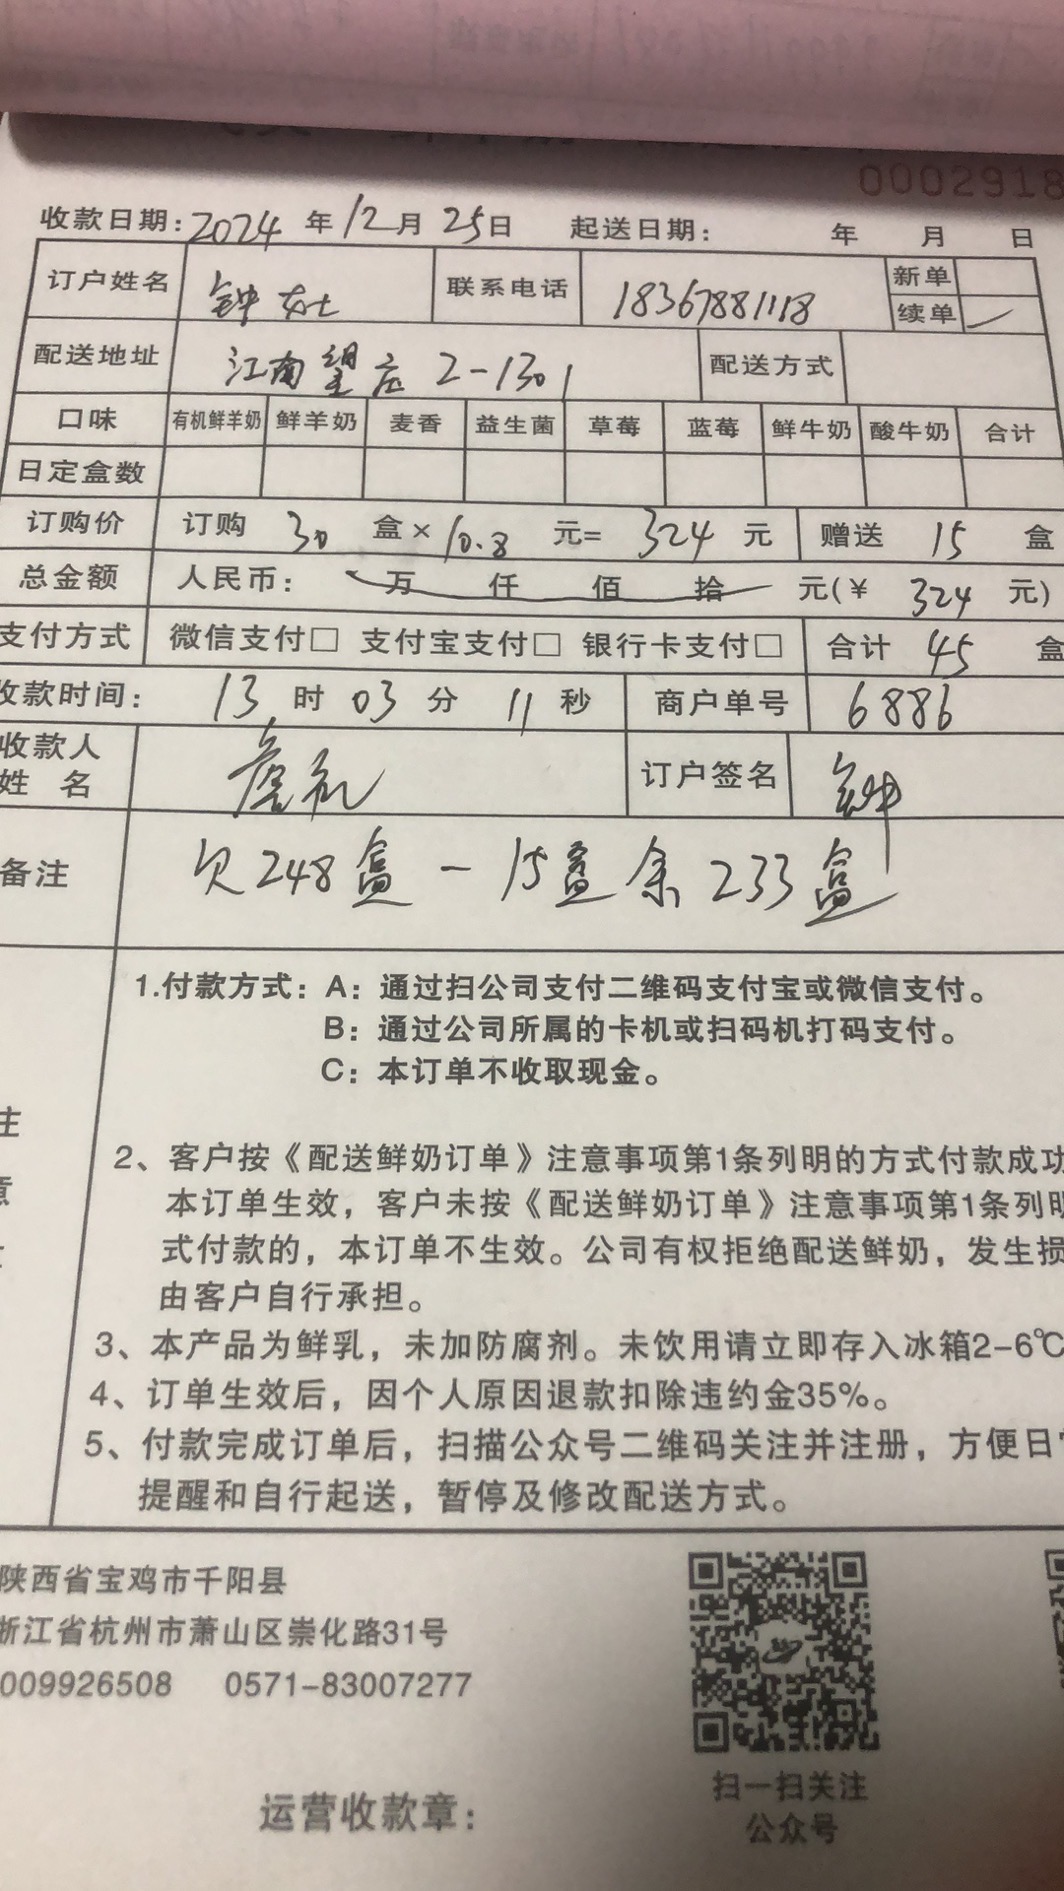 0002918
收款日期: 2024 年 12 月 25 日 起送日期: 年 月 日
订户姓名 钟女士 联系电话 18367881118 新单
续单 ✓
配送地址 江南望庄 2-1301 配送方式
口味 有机鲜羊奶 鲜羊奶 麦香 益生菌 草莓 蓝莓 鲜牛奶 酸牛奶 合计
日定盒数
订购价 订购 30 盒× 10.8 元= 324 元 赠送 15 盒
总金额 人民币: 万 仟 佰 拾 元(¥ 324 元)
支付方式 微信支付□ 支付宝支付□ 银行卡支付□ 合计 45 盒
收款时间: 13 时 03 分 11 秒 商户单号 6886
收款人
姓 名 订户签名 钟
备注 欠248盒-15盒余233盒
1.付款方式: A: 通过扫公司支付二维码支付宝或微信支付。
B: 通过公司所属的卡机或扫码机打码支付。
C: 本订单不收取现金。
2、客户按《配送鲜奶订单》注意事项第1条列明的方式付款成功
本订单生效，客户未按《配送鲜奶订单》注意事项第1条列明
式付款的，本订单不生效。公司有权拒绝配送鲜奶，发生损
由客户自行承担。
3、本产品为鲜乳，未加防腐剂。未饮用请立即存入冰箱2-6℃
4、订单生效后，因个人原因退款扣除违约金35%。
5、付款完成订单后，扫描公众号二维码关注并注册，方便日常
提醒和自行起送，暂停及修改配送方式。
注
意
陕西省宝鸡市千阳县
浙江省杭州市萧山区崇化路31号
009926508 0571-83007277
扫一扫关注
公众号
运营收款章: